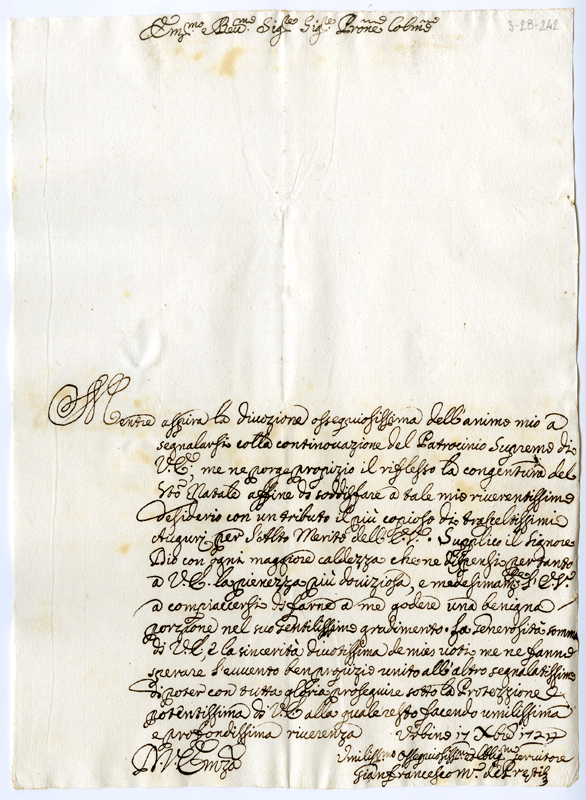 Em.mo e Rev.mo Sig.re Sig.re Prone Colmo
3-28-242
Mentre aspira la divozione ossequiosissima dell'animo mio a
segnalarsi colla continovazione del Patrocinio Supremo di
V.E., me ne porge propizio il riflesso la congentura del
Sto Natale affine di soddisfare a tale mio riverentissimo
desiderio con un tributo il più copioso di trasceltissimi
Auguri per l'Alto Merito dell'E.V. Supplico il Signore
Dio con ogni maggiore caldezza che ne dispensi pertanto
a V.E. la pienezza più doviziosa, e medesimamte l'E.V.
a compiacersi di farne a me godere una benigna
porzione nel suo gentilissimo gradimento. La generosità somma
di V.E., e la sincerità divotissima de miei voti me ne fanno
sperare l'evvento ben propizio unito all'altro segnalatissimo
di poter con tutta gloria proseguire sotto la Protezzione
potentissima di V.E. alla quale resto facendo umilissima
e profondissima riverenza Urbino 17 Xbre
D. V. Emza Umilissmo Ossequiosissmo Obligmo Servitore
Gianfrancesco